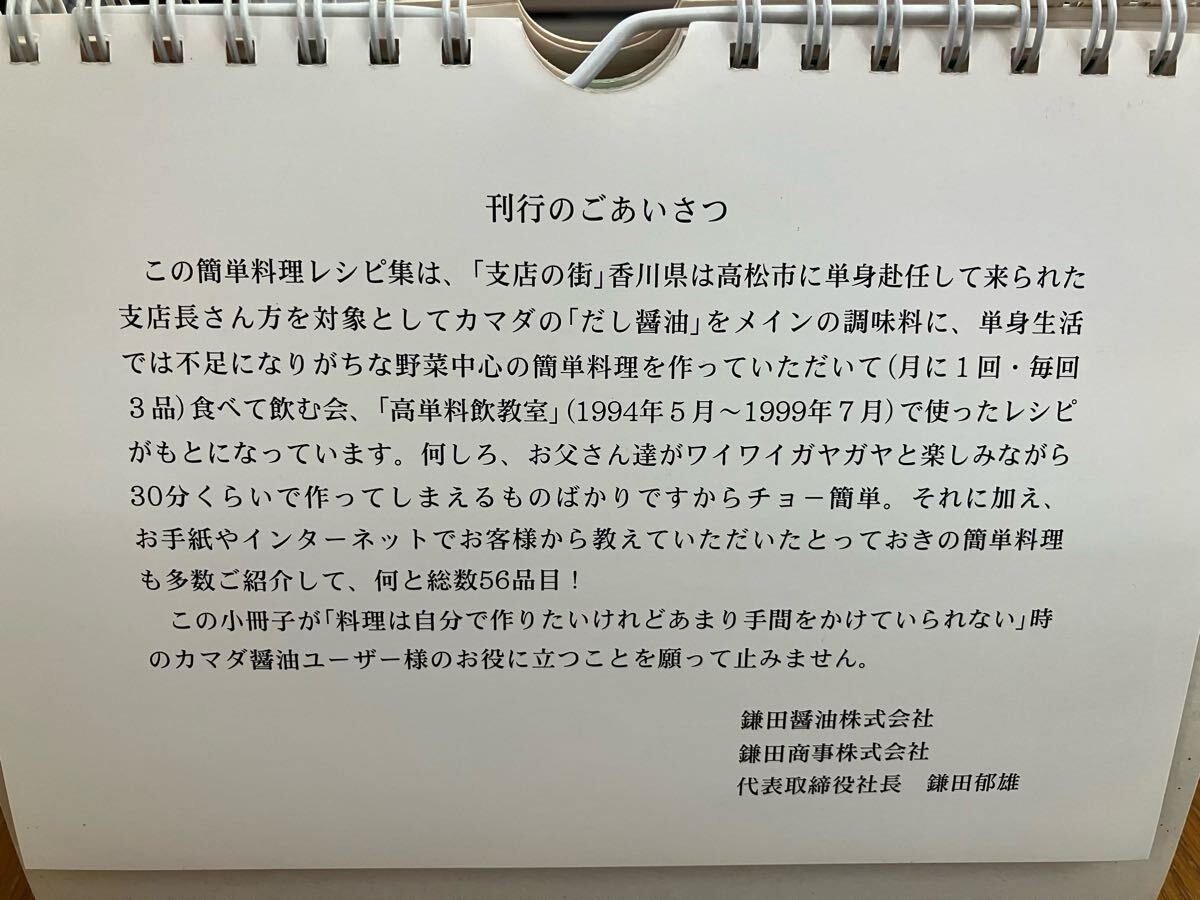 刊行のごあいさつ
この簡単料理レシピ集は、「支店の街」香川県は高松市に単身赴任して来られた
支店長さん方を対象としてカマダの「だし醤油」をメインの調味料に、単身生活
では不足になりがちな野菜中心の簡単料理を作っていただいて(月に１回・毎回
３品)食べて飲む会、「高単料飲教室」(1994年５月～1999年７月)で使ったレシピ
がもとになっています。何しろ、お父さん達がワイワイガヤガヤと楽しみながら
30分くらいで作ってしまえるものばかりですからチョー簡単。それに加え、
お手紙やインターネットでお客様から教えていただいたとっておきの簡単料理
も多数ご紹介して、何と総数56品目！
この小冊子が「料理は自分で作りたいけれどあまり手間をかけていられない」時
のカマダ醤油ユーザー様のお役に立つことを願って止みません。
鎌田醤油株式会社
鎌田商事株式会社
代表取締役社長　鎌田郁雄